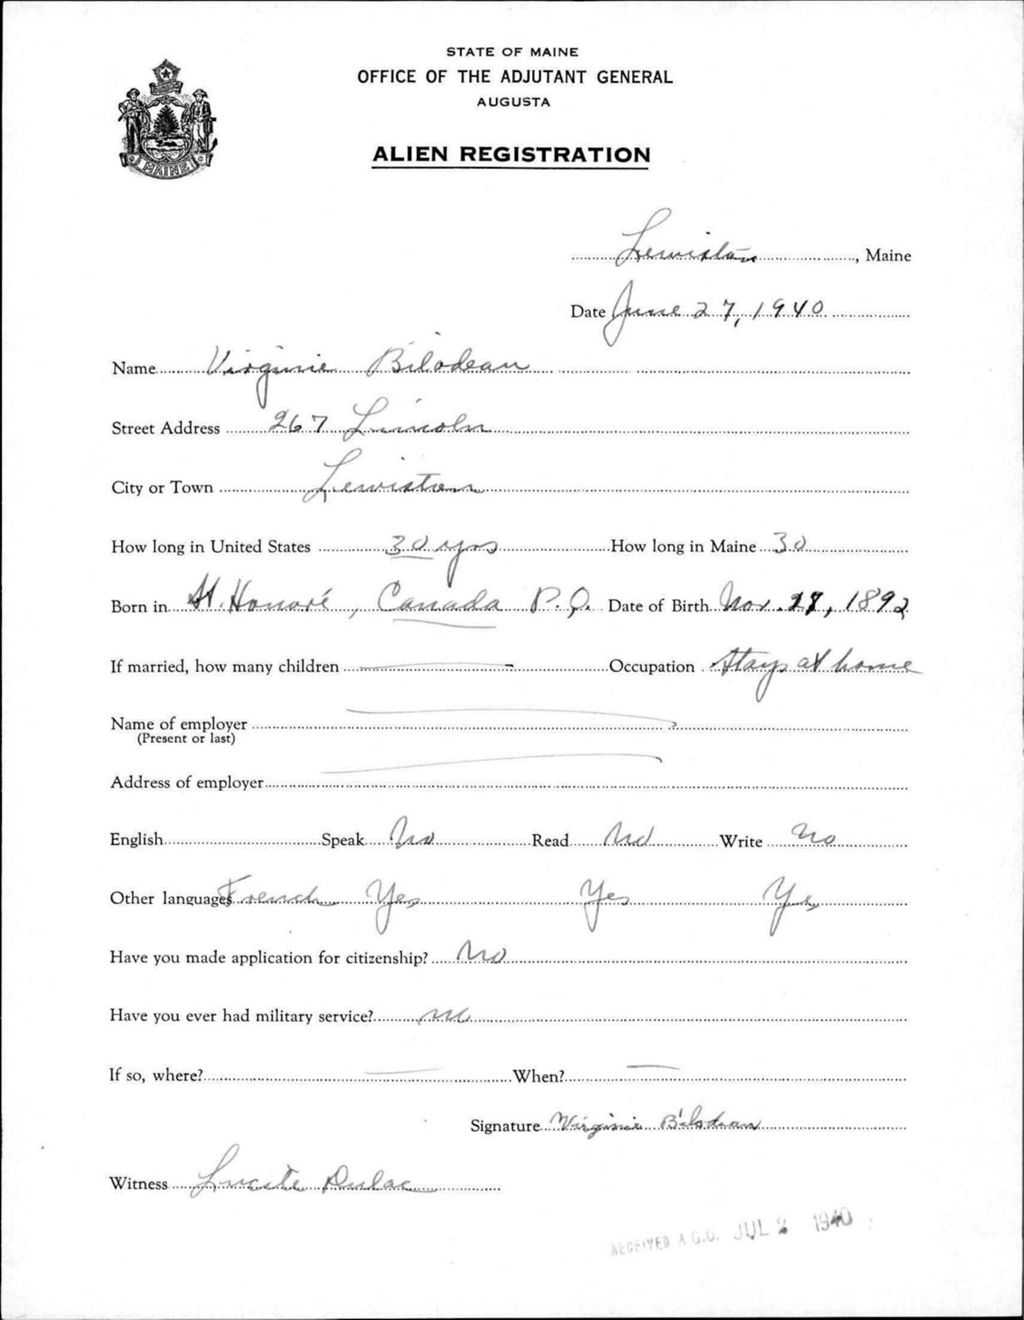 STATE OF MAINE
OFFICE OF THE ADJUTANT GENERAL
AUGUSTA
ALIEN REGISTRATION
MAINE
Lewiston, Maine
Date June 27, 1940
Name Virginie Bilodeau
Street Address 267 Lincoln
City or Town Lewiston
How long in United States 30 yrs How long in Maine 30
Born in St. Honoré, Canada P.Q. Date of Birth Nov. 27, 1892
If married, how many children Occupation Stays at home
Name of employer
(Present or last)
Address of employer
English Speak No Read No Write No
Other languages French Yes Yes Yes
Have you made application for citizenship? No
Have you ever had military service? no
If so, where? When?
Signature Virginie Bilodeau
Witness Lucile Dulac
RECEIVED A.G.O. JUL 2 1940